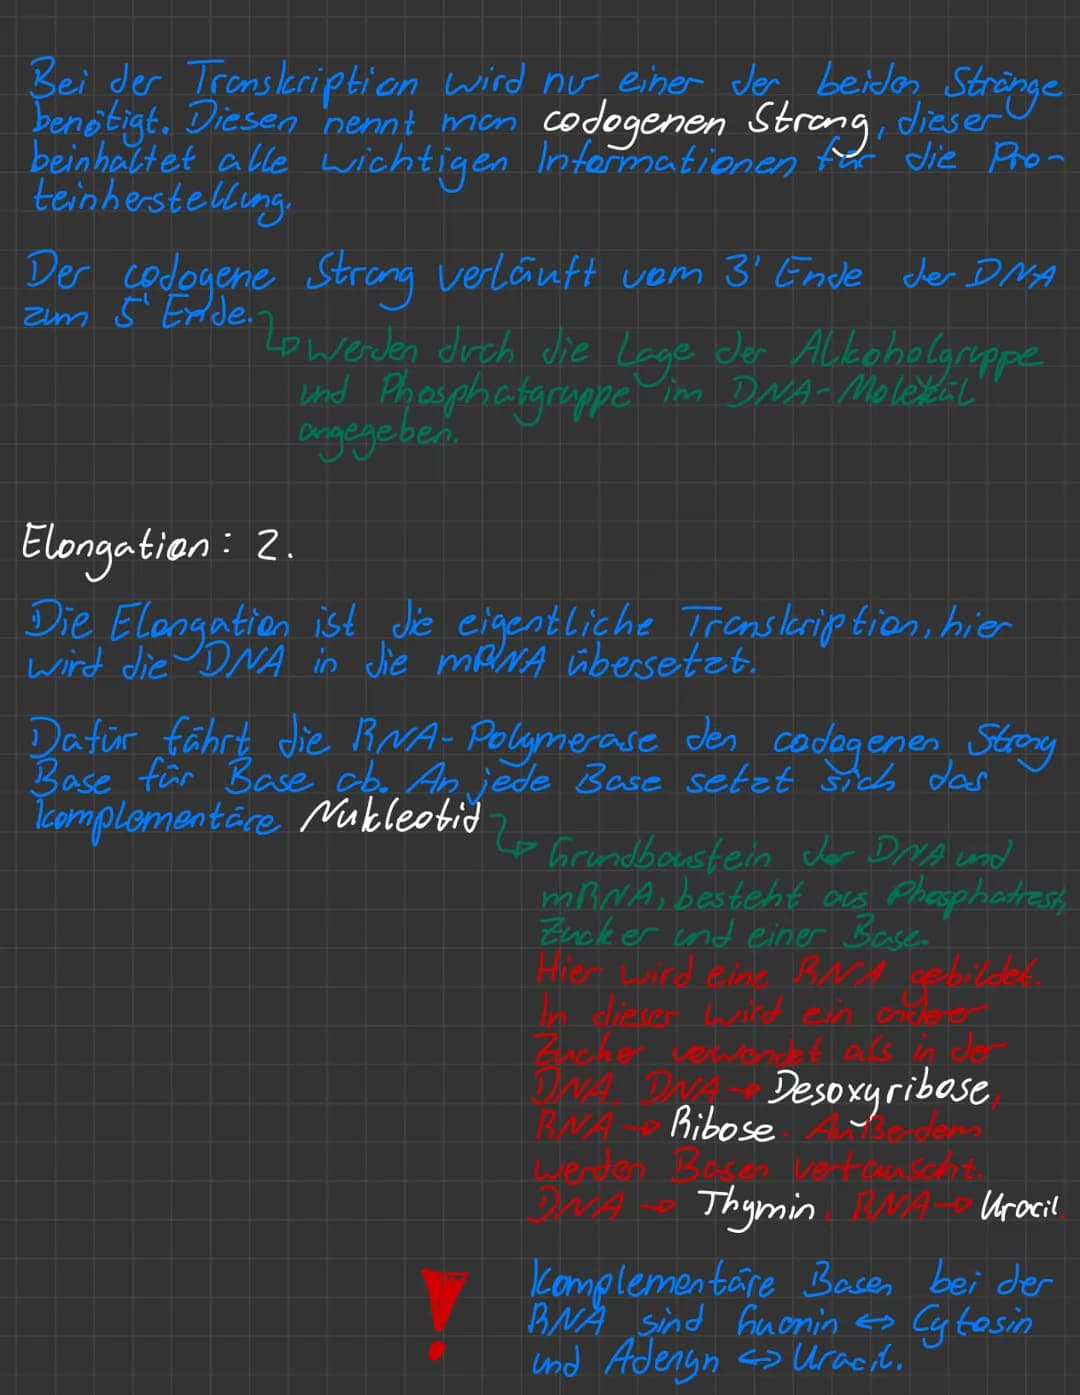 Bei der Transkription wird nur einer der beiden Stränge
benötigt. Diesen nennt man codogenen Strang, dieser
beinhaltet alle wichtigen Informationen für die Pro-
teinherstellung.
Der codogene Strang verläuft vom 3' Ende der DNA
zum 5' Ende.
↳ Werden durch die Lage der Alkoholgruppe
und Phosphatgruppe im DNA-Molekül
angegeben.
Elongation: 2.
Die Elongation ist die eigentliche Transkription, hier
wird die DNA in die mRNA übersetzt.
Dafür fährt die RNA-Polymerase den codogenen Strang
Base für Base ab. An jede Base setzt sich das
komplementäre Nukleotid
↳ Grundbaustein der DNA und
mRNA, besteht aus Phosphatrest,
Zucker und einer Base.
Hier wird eine RNA gebildet.
In dieser wird ein anderer
Zucker verwendet als in der
DNA. DNA → Desoxyribose,
RNA → Ribose. Außerdem
werden Basen vertauscht.
DNA → Thymin, RNA → Uracil.
! Komplementäre Basen bei der
RNA sind Guanin ↔ Cytosin
und Adenyn ↔ Uracil.